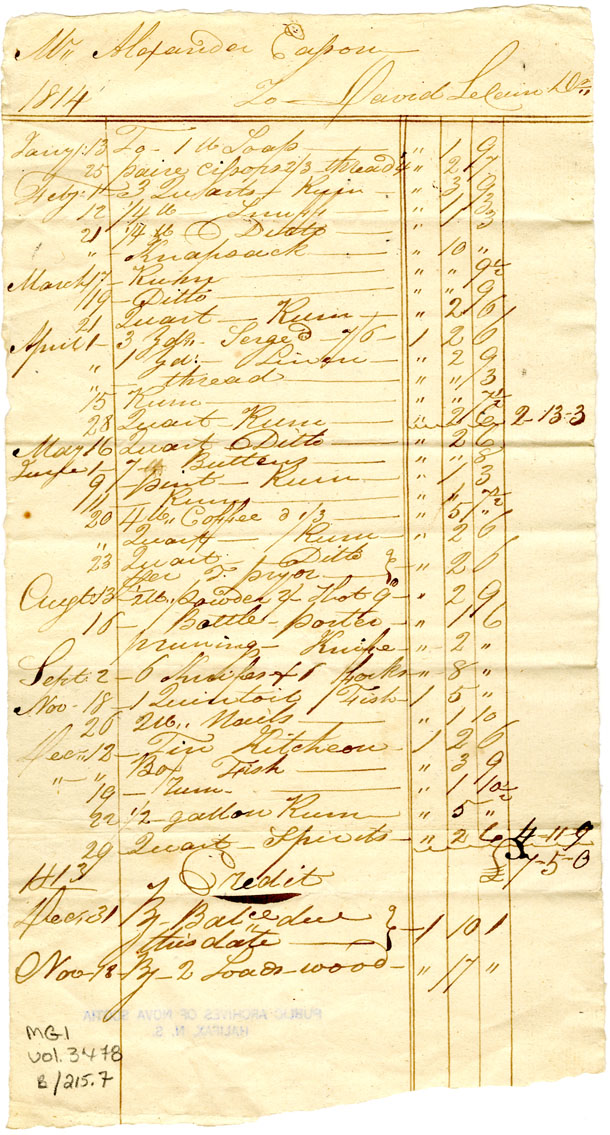 Mr Alexander Easson
1814 To David LeCain Dr
Jany 13 To 1 lb Soap " 1 9
25 paire cissors 2/3 thread 4 " 2 7
Feby 1 To 3 Quarts Rum " 3 9
12 1/4 lb Snuff " 1 3
21 1/4 lb Ditto " 1 3
" Knapsack " 10 "
March 17 Rum " " 9½
19 Ditto " " 9
21 Quart Rum " 2 6
April 1 3 yds Serge @ 7/6 1 2 6
" 1 yd: Linen " 2 9
" thread " " 3
15 Rum " " 7½
28 Quart Rum " 2 6 2-13-3
May 16 Quart Ditto " 2 6
June 1 7 Buttons " " 8
9 pint Rum " 1 3
11 Rum " " 7½
20 4 lb Coffee @ 1/3 " 5 "
" Quart Rum " 2 6
23 Quart Ditto
per T. pryor } " 2 6
Augt 13 lb powder 2/ Shot 9 " 2 9
16 Bottle porter " 1 6
pruning Knife " 2 "
Sept. 2 6 Knifes & 6 forks " 8 "
Nov 18 1 Quintoil Fish 1 5 "
26 2 lb Nails " 1 10
Decr 12 Tin Kitcheon 1 2 6
" " Box Fish " 3 9
19 Rum " 1 10½
22 1/2 gallon Rum " 5 "
29 Quart Spirits " 2 6 4-11-9
£ 7-5-0
1813 Credit
Decr 31 By Balce due
this date } 1 10 1
Nov 18 By 2 Loads wood " 17 "
PUBLIC ARCHIVES OF NOVA SCOTIA
HALIFAX, N. S.
MG1
Vol. 3478
B/215.7